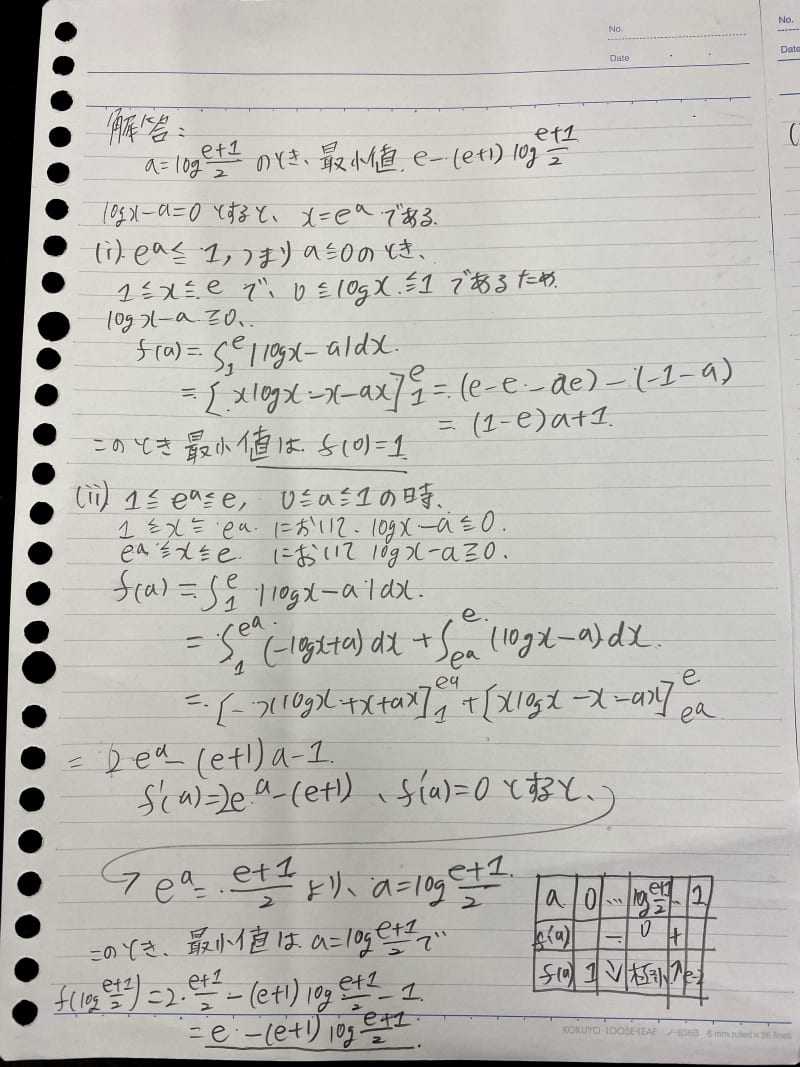 No.
Date
No.
Date
解答:
a=log (e+1)/2 のとき、最小値 e-(e+1) log (e+1)/2
logx-a=0 とすると、 x=e^a である.
(i) e^a≦1, つまり a≦0のとき、
1≦x≦e で、 0≦logx≦1 であるため
logx-a≧0、
f(a)=∫_1^e |logx-a|dx.
=[xlogx-x-ax]_1^e=(e-e-ae)-(-1-a)
=(1-e)a+1.
このとき 最小値は f(0)=1
(ii) 1≦e^a≦e, 0≦a≦1の時、
1≦x≦e^a において logx-a≦0.
e^a≦x≦e. において logx-a≧0.
f(a)=∫_1^e |logx-a|dx.
=∫_1^{e^a} (-logx+a)dx+∫_{e^a}^e (logx-a)dx.
=[-xlogx+x+ax]_1^{e^a}+[xlogx-x-ax]_{e^a}^e
=2e^a-(e+1)a-1.
f'(a)=2e^a-(e+1)、f'(a)=0 とすると、
→ e^a=(e+1)/2 より、a=log (e+1)/2.
このとき、最小値は a=log (e+1)/2 で
f(log (e+1)/2)=2・(e+1)/2-(e+1)log (e+1)/2-1.
=e-(e+1)log (e+1)/2.
a 0 … log (e+1)/2 … 1
f'(a) - 0 +
f(a) 1 ↘ 極小 ↗ e-2
KOKUYO LOOSE-LEAF ノ-836B 6 mm ruled×36 lines